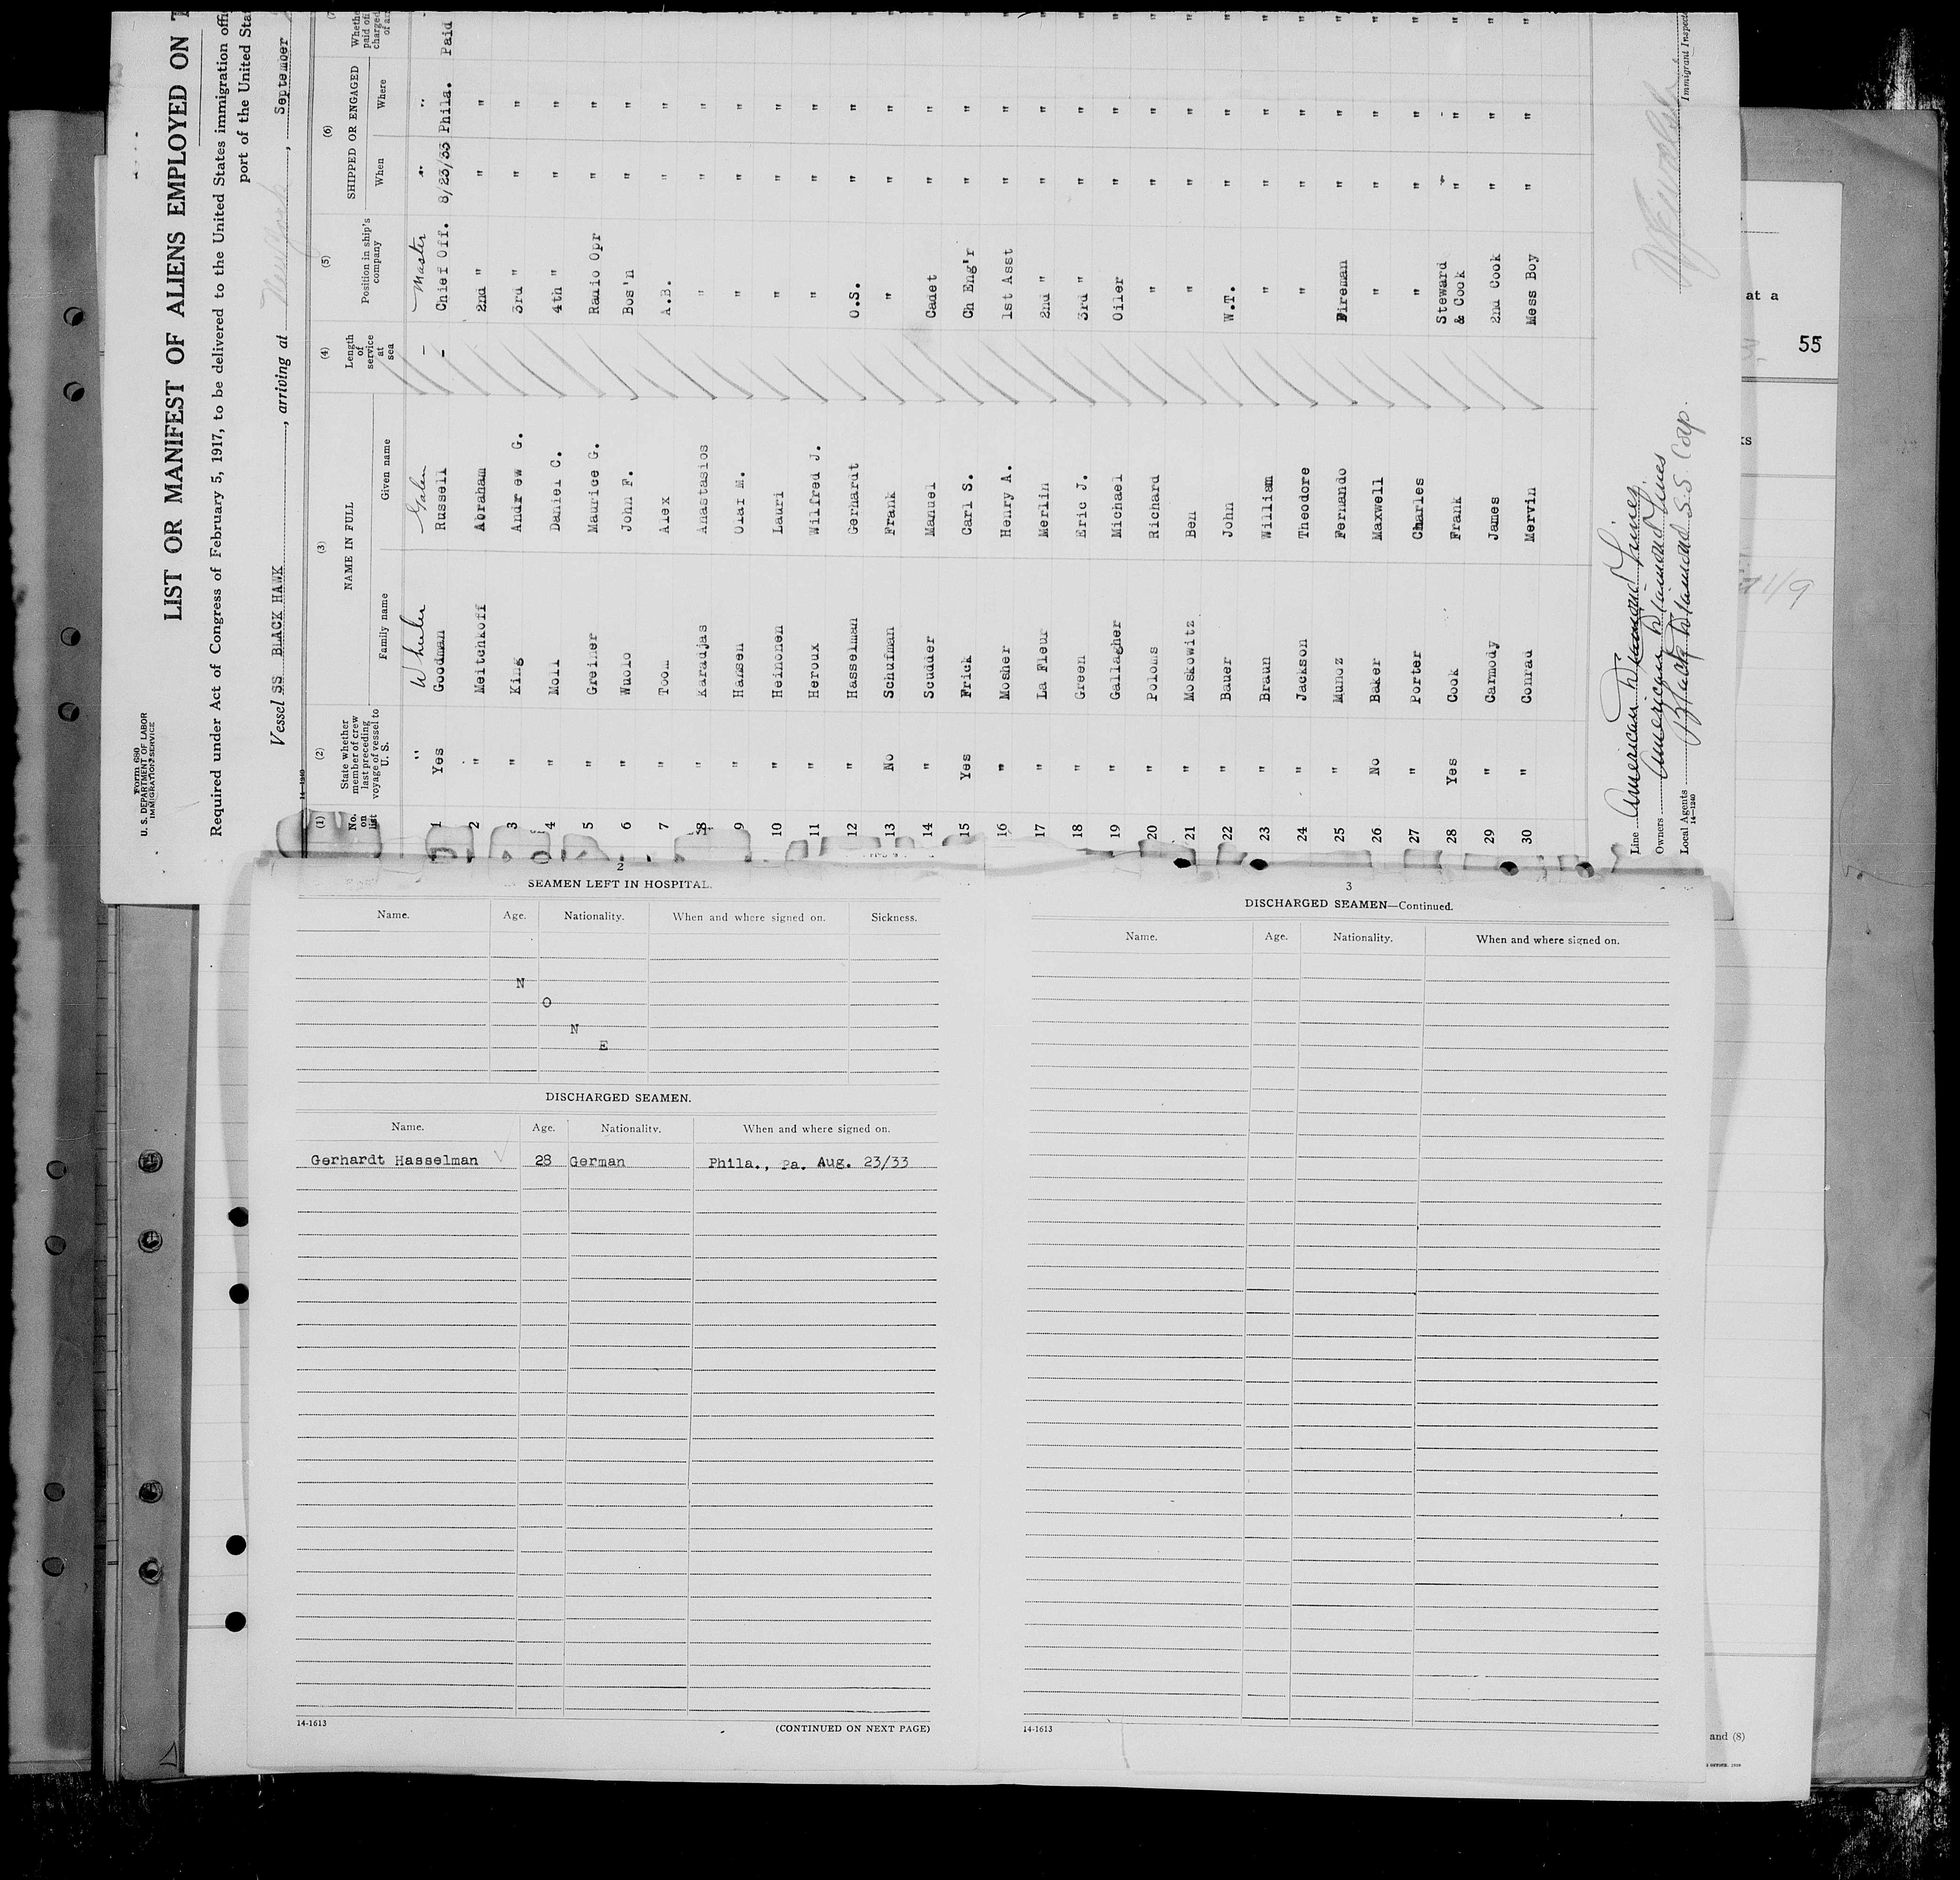 Form 680
U. S. DEPARTMENT OF LABOR
IMMIGRATION SERVICE
LIST OR MANIFEST OF ALIENS EMPLOYED ON T
Required under Act of Congress of February 5, 1917, to be delivered to the United States immigration offi
port of the United Sta
Vessel SS BLACK HAWK, arriving at New York, September
14-1240
(1) (2) (3) (4) (5) (6) (7)
No. on list
State whether member of crew last preceding voyage of vessel to U. S.
NAME IN FULL
Family name Given name
Length of service at sea
Position in ship's company
SHIPPED OR ENGAGED
When Where
" Wheeler Galen — Master " "
1 Yes Goodman Russell — Chief Off. 8/23/33 Phila. Paid
2 " Meitchkoff Abraham 2nd " " " "
3 " King Andrew G. 3rd " " " "
4 " Moll Daniel C. 4th " " " "
5 " Greiner Maurice G. Radio Opr " " "
6 " Wuolo John F. Bos'n " " "
7 " Toom Alex A.B. " " "
8 " Karadjas Anastasios " " " "
9 " Hansen Olaf M. " " " "
10 " Heinonen Lauri " " " "
11 " Heroux Wilfred J. " " " "
12 " Hasselman Gerhardt O.S. " " "
13 No Schufman Frank " " " "
14 " Scudder Manuel Cadet " " "
15 Yes Frick Carl S. Ch Eng'r " " "
16 " Mosher Henry A. 1st Asst " " "
17 " La Fleur Merlin 2nd " " " "
18 " Green Eric J. 3rd " " " "
19 " Gallagher Michael Oiler " " "
20 " Poloms Richard " " " "
21 " Moskowitz Ben " " " "
22 " Bauer John W.T. " " "
23 " Braun William " " " "
24 " Jackson Theodore " " " "
25 " Munoz Fernando Fireman " " "
26 No Baker Maxwell " " " "
27 " Porter Charles " " " "
28 Yes Cook Frank Steward & Cook " " "
29 " Carmody James 2nd Cook " " "
30 " Conrad Mervin Mess Boy " " "
Line American Diamond Lines
Owners American Diamond Lines
Local Agents Black Diamond S.S. Corp.
14-1240
Immigrant Inspect
at a
55
ks
11/9
2
SEAMEN LEFT IN HOSPITAL.
Name. Age. Nationality. When and where signed on. Sickness.
N
O
N
E
DISCHARGED SEAMEN.
Name. Age. Nationality. When and where signed on.
Gerhardt Hasselman 28 German Phila., Pa. Aug. 23/33
14-1613
(CONTINUED ON NEXT PAGE)
3
DISCHARGED SEAMEN—Continued.
Name. Age. Nationality. When and where signed on.
14-1613
and (8)